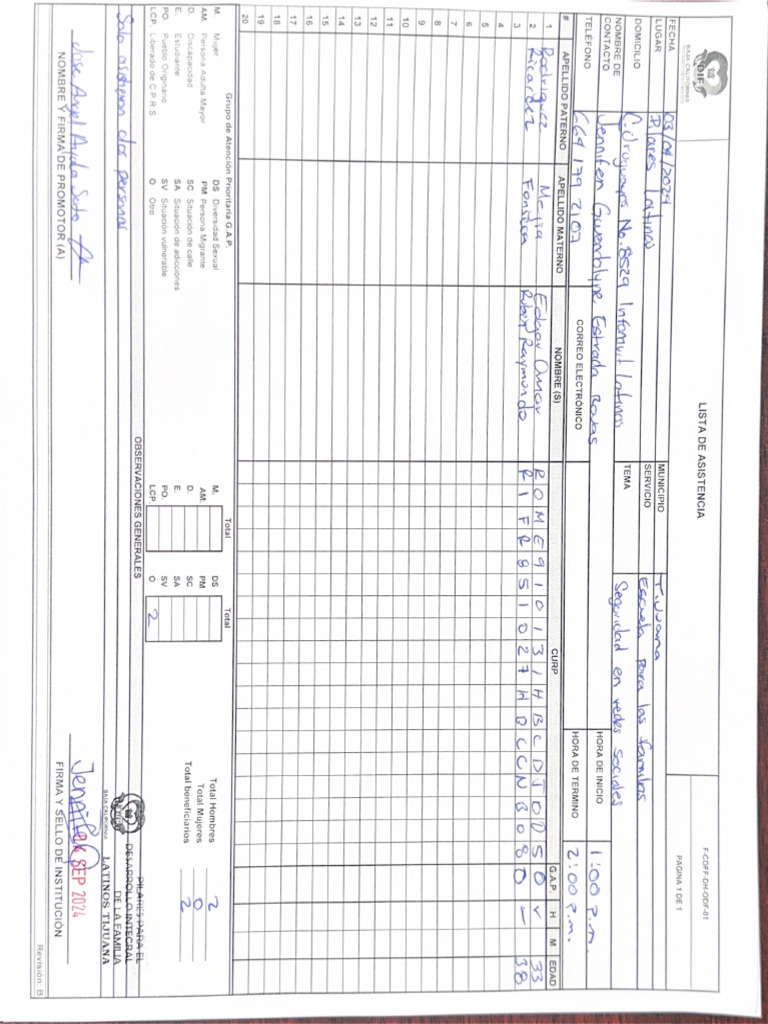 DIF
BAJA CALIFORNIA
LISTA DE ASISTENCIA
F-CDFF-DH-ODF-01
PAGINA 1 DE 1
FECHA 03/09/2024 MUNICIPIO Tijuana
LUGAR Pilares Latinos SERVICIO Escuela para las familias
DOMICILIO C. Uruguayos No. 8529 Infonavit Latinos TEMA Seguridad en redes sociales
NOMBRE DE CONTACTO Jennifer Gwendolyne Estrada HORA DE INICIO 1:00 p.m.
TELÉFONO 664 179 2107 CORREO ELECTRÓNICO HORA DE TERMINO 2:00 p.m.
# APELLIDO PATERNO APELLIDO MATERNO NOMBRE (S) CURP G.A.P. H M EDAD
1 Rodriguez Mejia Edgar Omar 33
2 Ricardez Fonseca Ruben Raymundo 38
3
4
5
6
7
8
9
10
11
12
13
14
15
16
17
18
19
20
Grupo de Atención Prioritaria G.A.P. Total Total
M. Mujer DS Diversidad Sexual M. DS Total Hombres 2
AM. Persona Adulta Mayor PM Persona Migrante AM. PM Total Mujeres 0
D. Discapacidad SC Situación de calle D. SC Total beneficiarios 2
E. Estudiante SA Situación de adicciones E. SA
PO. Pueblo Originario SV Situación vulnerable PO. SV
LCP. Liberado de C.P.R.S O Otro LCP. O 2
OBSERVACIONES GENERALES
Solo asistieron dos personas
PILARES PARA EL
DESARROLLO INTEGRAL
DE LA FAMILIA
LATINOS TIJUANA
BAJA CALIFORNIA
Jose Angel Ayala Soto
NOMBRE Y FIRMA DE PROMOTOR (A)
Jennifer
SEP 2024
FIRMA Y SELLO DE INSTITUCIÓN
Revisión: B